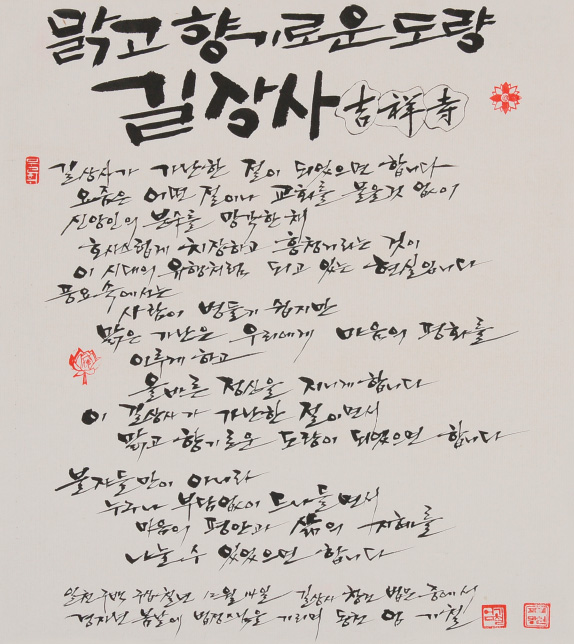 맑고 향기로운 도량
길상사 吉祥寺
길상사가 가난한 절이 되었으면 합니다
요즘은 어떤 절이나 교회를 물을 것 없이
신앙인의 분수를 망각한 채
호사스럽게 치장하고 흥청거리는 것이
이 시대의 유행처럼 되고 있는 현실입니다
풍요 속에서는
사람이 병들기 쉽지만
맑은 가난은 우리에게 마음의 평화를
이루게 하고
올바른 정신을 지니게 합니다
이 길상사가 가난한 절이면서
맑고 향기로운 도량이 되었으면 합니다
불자들만이 아니라
누구나 부담없이 드나들면서
마음의 평안과 삶의 지혜를
나눌 수 있었으면 합니다
일천 구백 구십 칠년 12월 14일 길상사 창건 법문 중에서
경자년 봄날에 법정스님을 기리며